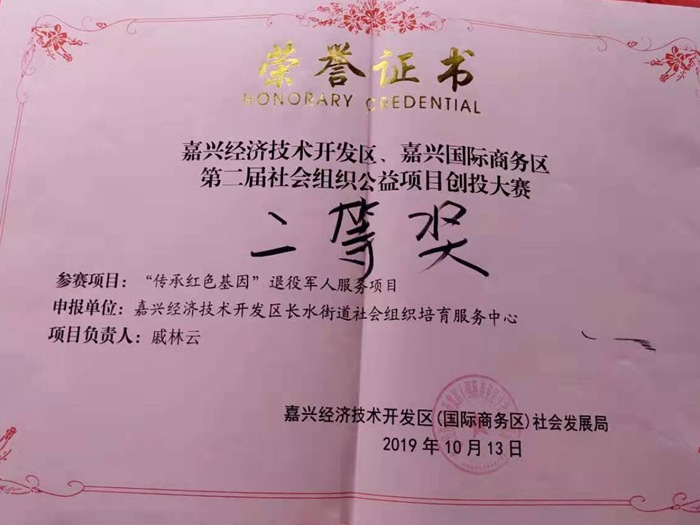 荣誉证书
HONORARY CREDENTIAL
嘉兴经济技术开发区、嘉兴国际商务区
第二届社会组织公益项目创投大赛
二等奖
参赛项目：“传承红色基因”退役军人服务项目
申报单位：嘉兴经济技术开发区长水街道社会组织培育服务中心
项目负责人：戚林云
嘉兴经济技术开发区(国际商务区)社会发展局
2019年10月13日